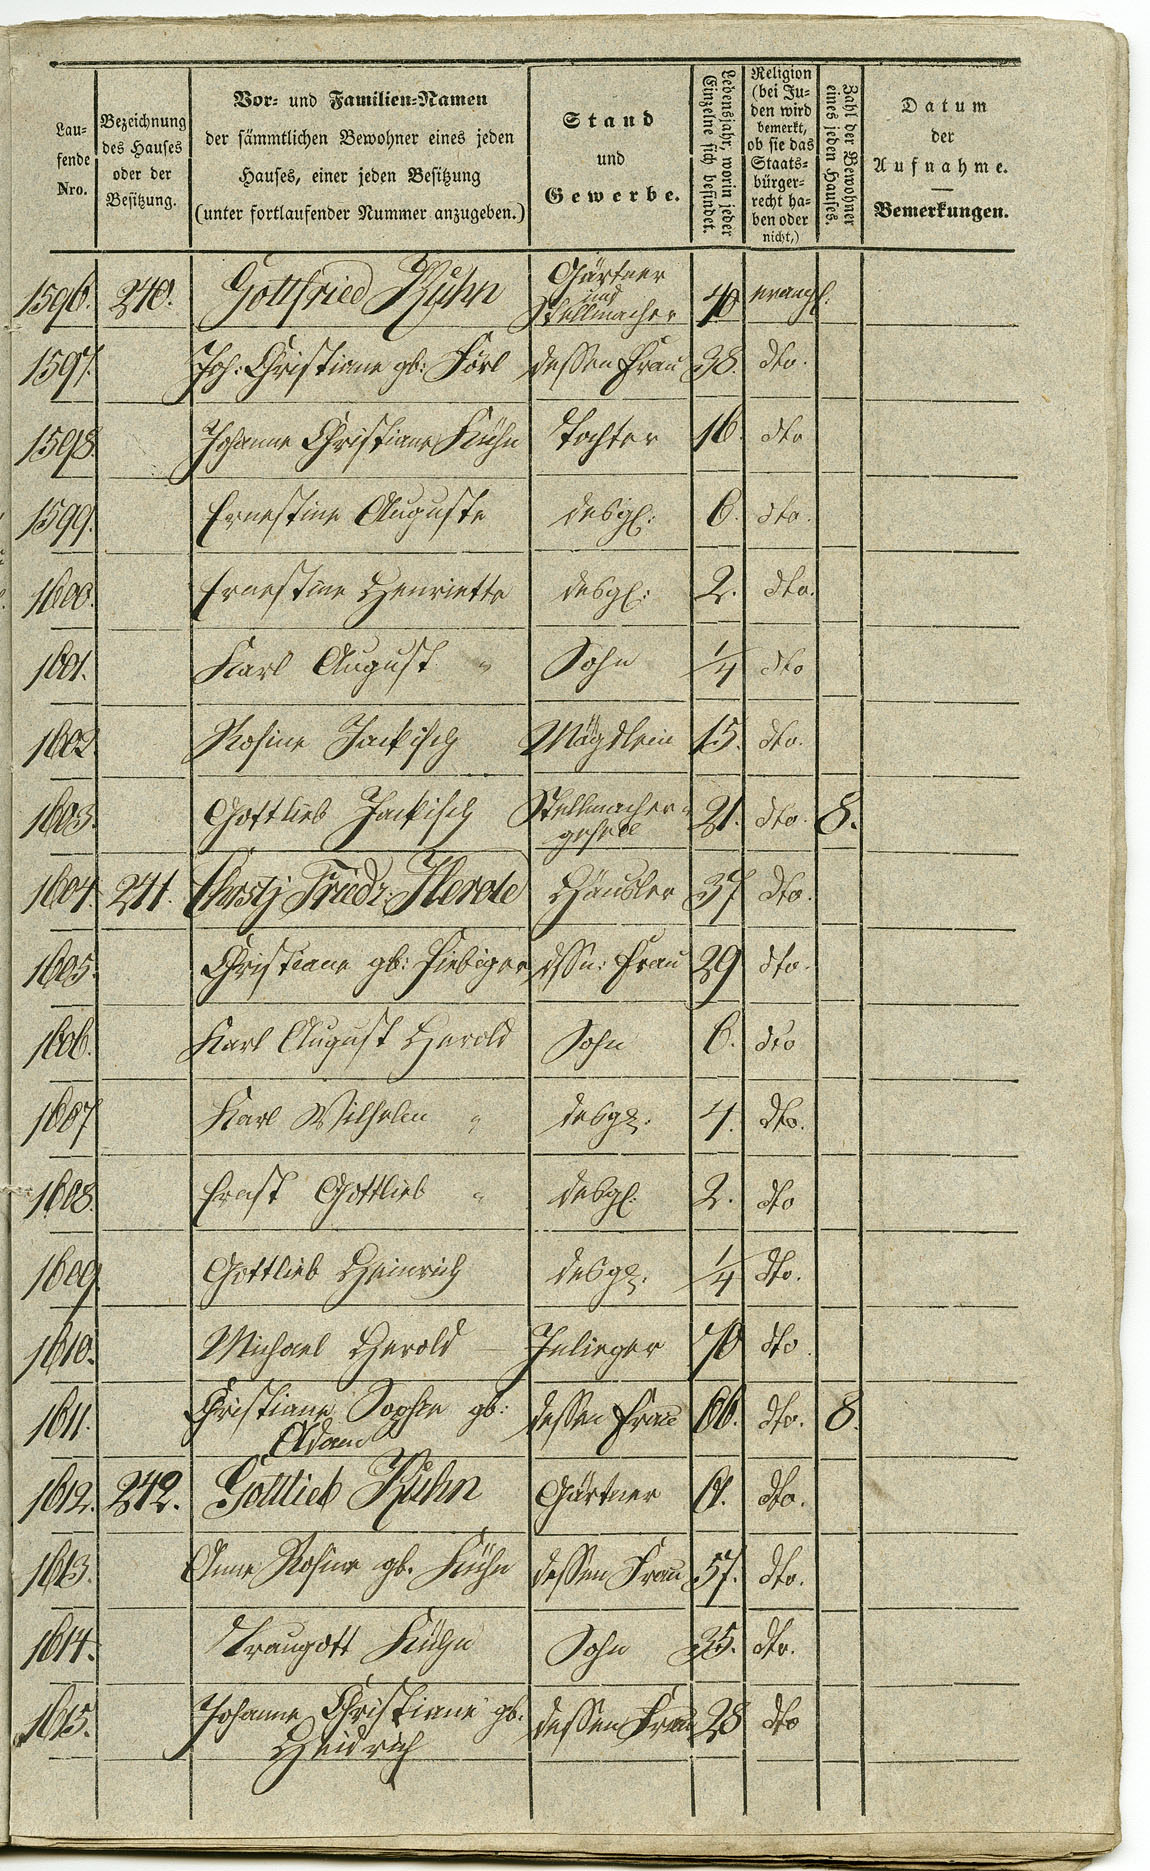 Lau-
fende
Nro.
Bezeichnung
des Hauses
oder der
Besitzung.
Vor- und Familien-Namen
der sämmtlichen Bewohner eines jeden
Hauses, einer jeden Besitzung
(unter fortlaufender Nummer anzugeben.)
Stand
und
Gewerbe.
Lebensjahr, worin jeder
Einzelne sich befindet.
Religion
(bei Ju-
den wird
bemerkt,
ob sie das
Staats-
bürger-
recht ha-
ben oder
nicht.)
Zahl der Bewohner
eines jeden Hauses.
Datum
der
Aufnahme.
Bemerkungen.
1596. 240. Gottfried Kühn Gärtner und Stellmacher 40 evangl.
1597. Joh: Christiane gb: Förl dessen Frau 38. dto.
1598 Johanne Christiane Kühn Tochter 16. dto
1599. Ernestine Auguste desgl: 6. dto.
1600. Ernestine Henriette desgl: 2. dto.
1601. Karl August " Sohn 1/4 dto
1602 Rosine Jackisch Mägdlein 15. dto.
1603. Gottlieb Jackisch Stellmacher- 21. dto. 8.
gesele
1604. 241. Christ: Friedr: Herold Häusler 37 dto.
1605. Christiane gb: Fiebiger dssn: Frau 29 dto.
1606. Karl August Herold Sohn 6. dto
1607 Karl Wilhelm " desgl. 4. dto.
1608. Ernst Gottlieb " desgl. 2. dto
1609. Gottlieb Heinrich desgl. 1/4 dto.
1610. Michael Herold Inlieger 70 dto.
1611. Christiane Sophie gb: dessen Frau 66. dto. 8.
Adam
1612. 242. Gottlieb Kühn Gärtner 61. dto.
1613. Anne Rosine gb. Kühn dessen Frau 57. dto.
1614. Traugott Kühn Sohn 35. dto.
1615. Johanne Christiane gb. dessen Frau 28 dto
Heidrich